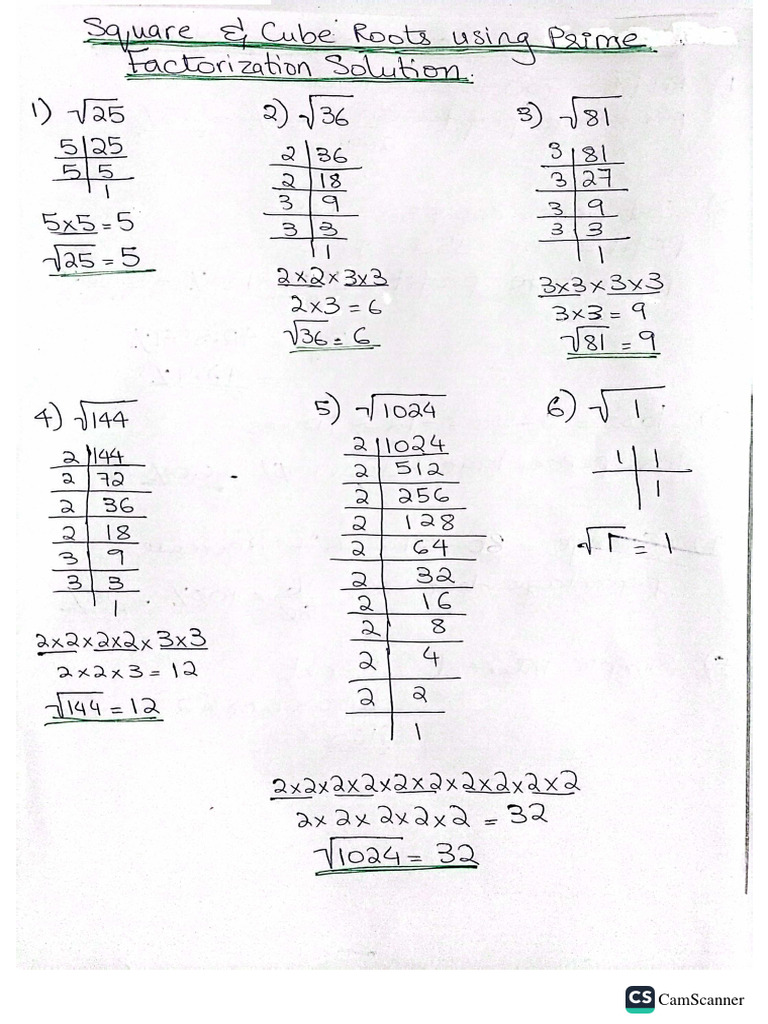 Square & Cube Roots using Prime
Factorization Solution.
1) √25
5 | 25
5 | 5
1
5×5 = 5
√25 = 5
2) √36
2 | 36
2 | 18
3 | 9
3 | 3
1
2×2×3×3
2×3 = 6
√36 = 6
3) √81
3 | 81
3 | 27
3 | 9
3 | 3
1
3×3×3×3
3×3 = 9
√81 = 9
4) √144
2 | 144
2 | 72
2 | 36
2 | 18
3 | 9
3 | 3
1
2×2×2×2×3×3
2×2×3 = 12
√144 = 12
5) √1024
2 | 1024
2 | 512
2 | 256
2 | 128
2 | 64
2 | 32
2 | 16
2 | 8
2 | 4
2 | 2
1
2×2×2×2×2×2×2×2×2×2
2×2×2×2×2 = 32
√1024 = 32
6) √1
1 | 1
1
√1 = 1
CS CamScanner